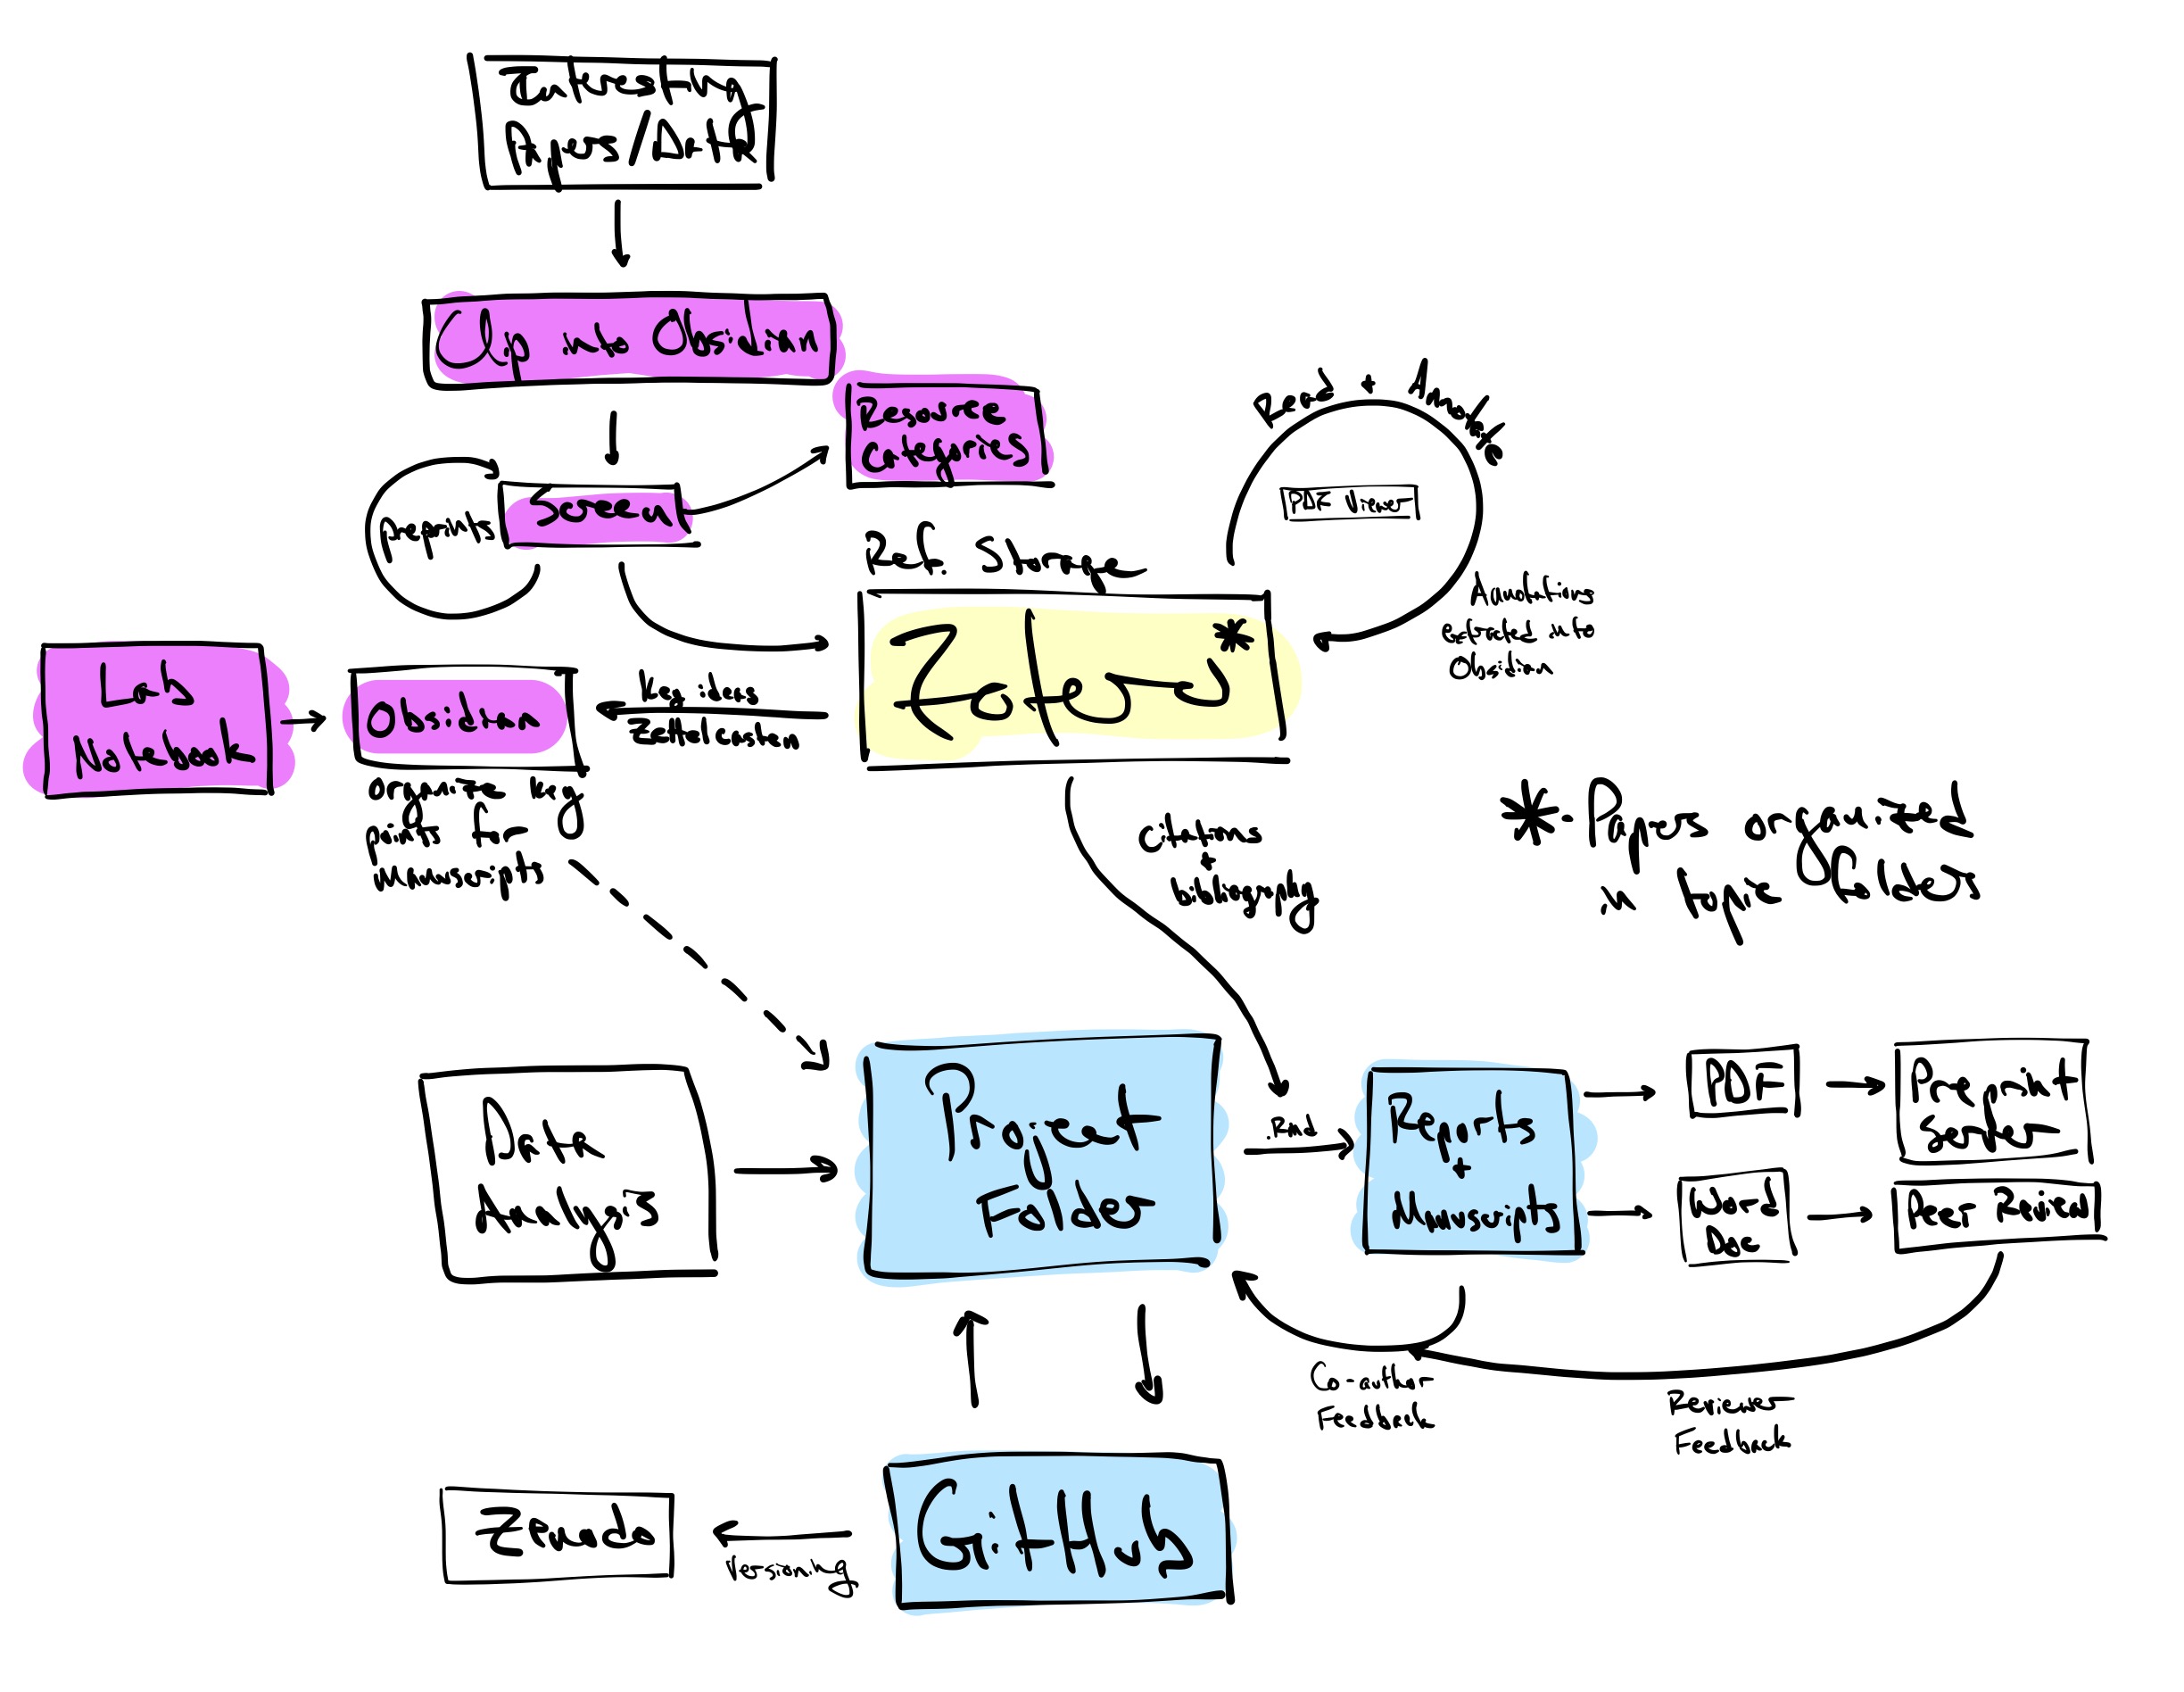 Interesting
Papers/Data
Clip into Obsidian
Resource
Categories
Read + Annotate
Preprints
Screen
PDF Viewer
Ref. Storage
Annotations
extracted into
Obsidian
Zotero*
Lab
Notebook
Obsidian
Helps ideas
Zettelkasten
organize key
points for
Manuscripts
citations
+
bibliography
*- Papers organized
in topic folders
Data
Analysis
Project
Folder
.Rmd
Reports
+
Manuscripts
PDF
Preprint
server
Word
Doc
Peer Review
Co-author
Feedback
Reviewer
Feedback
GitHub
Zenodo
Versioning